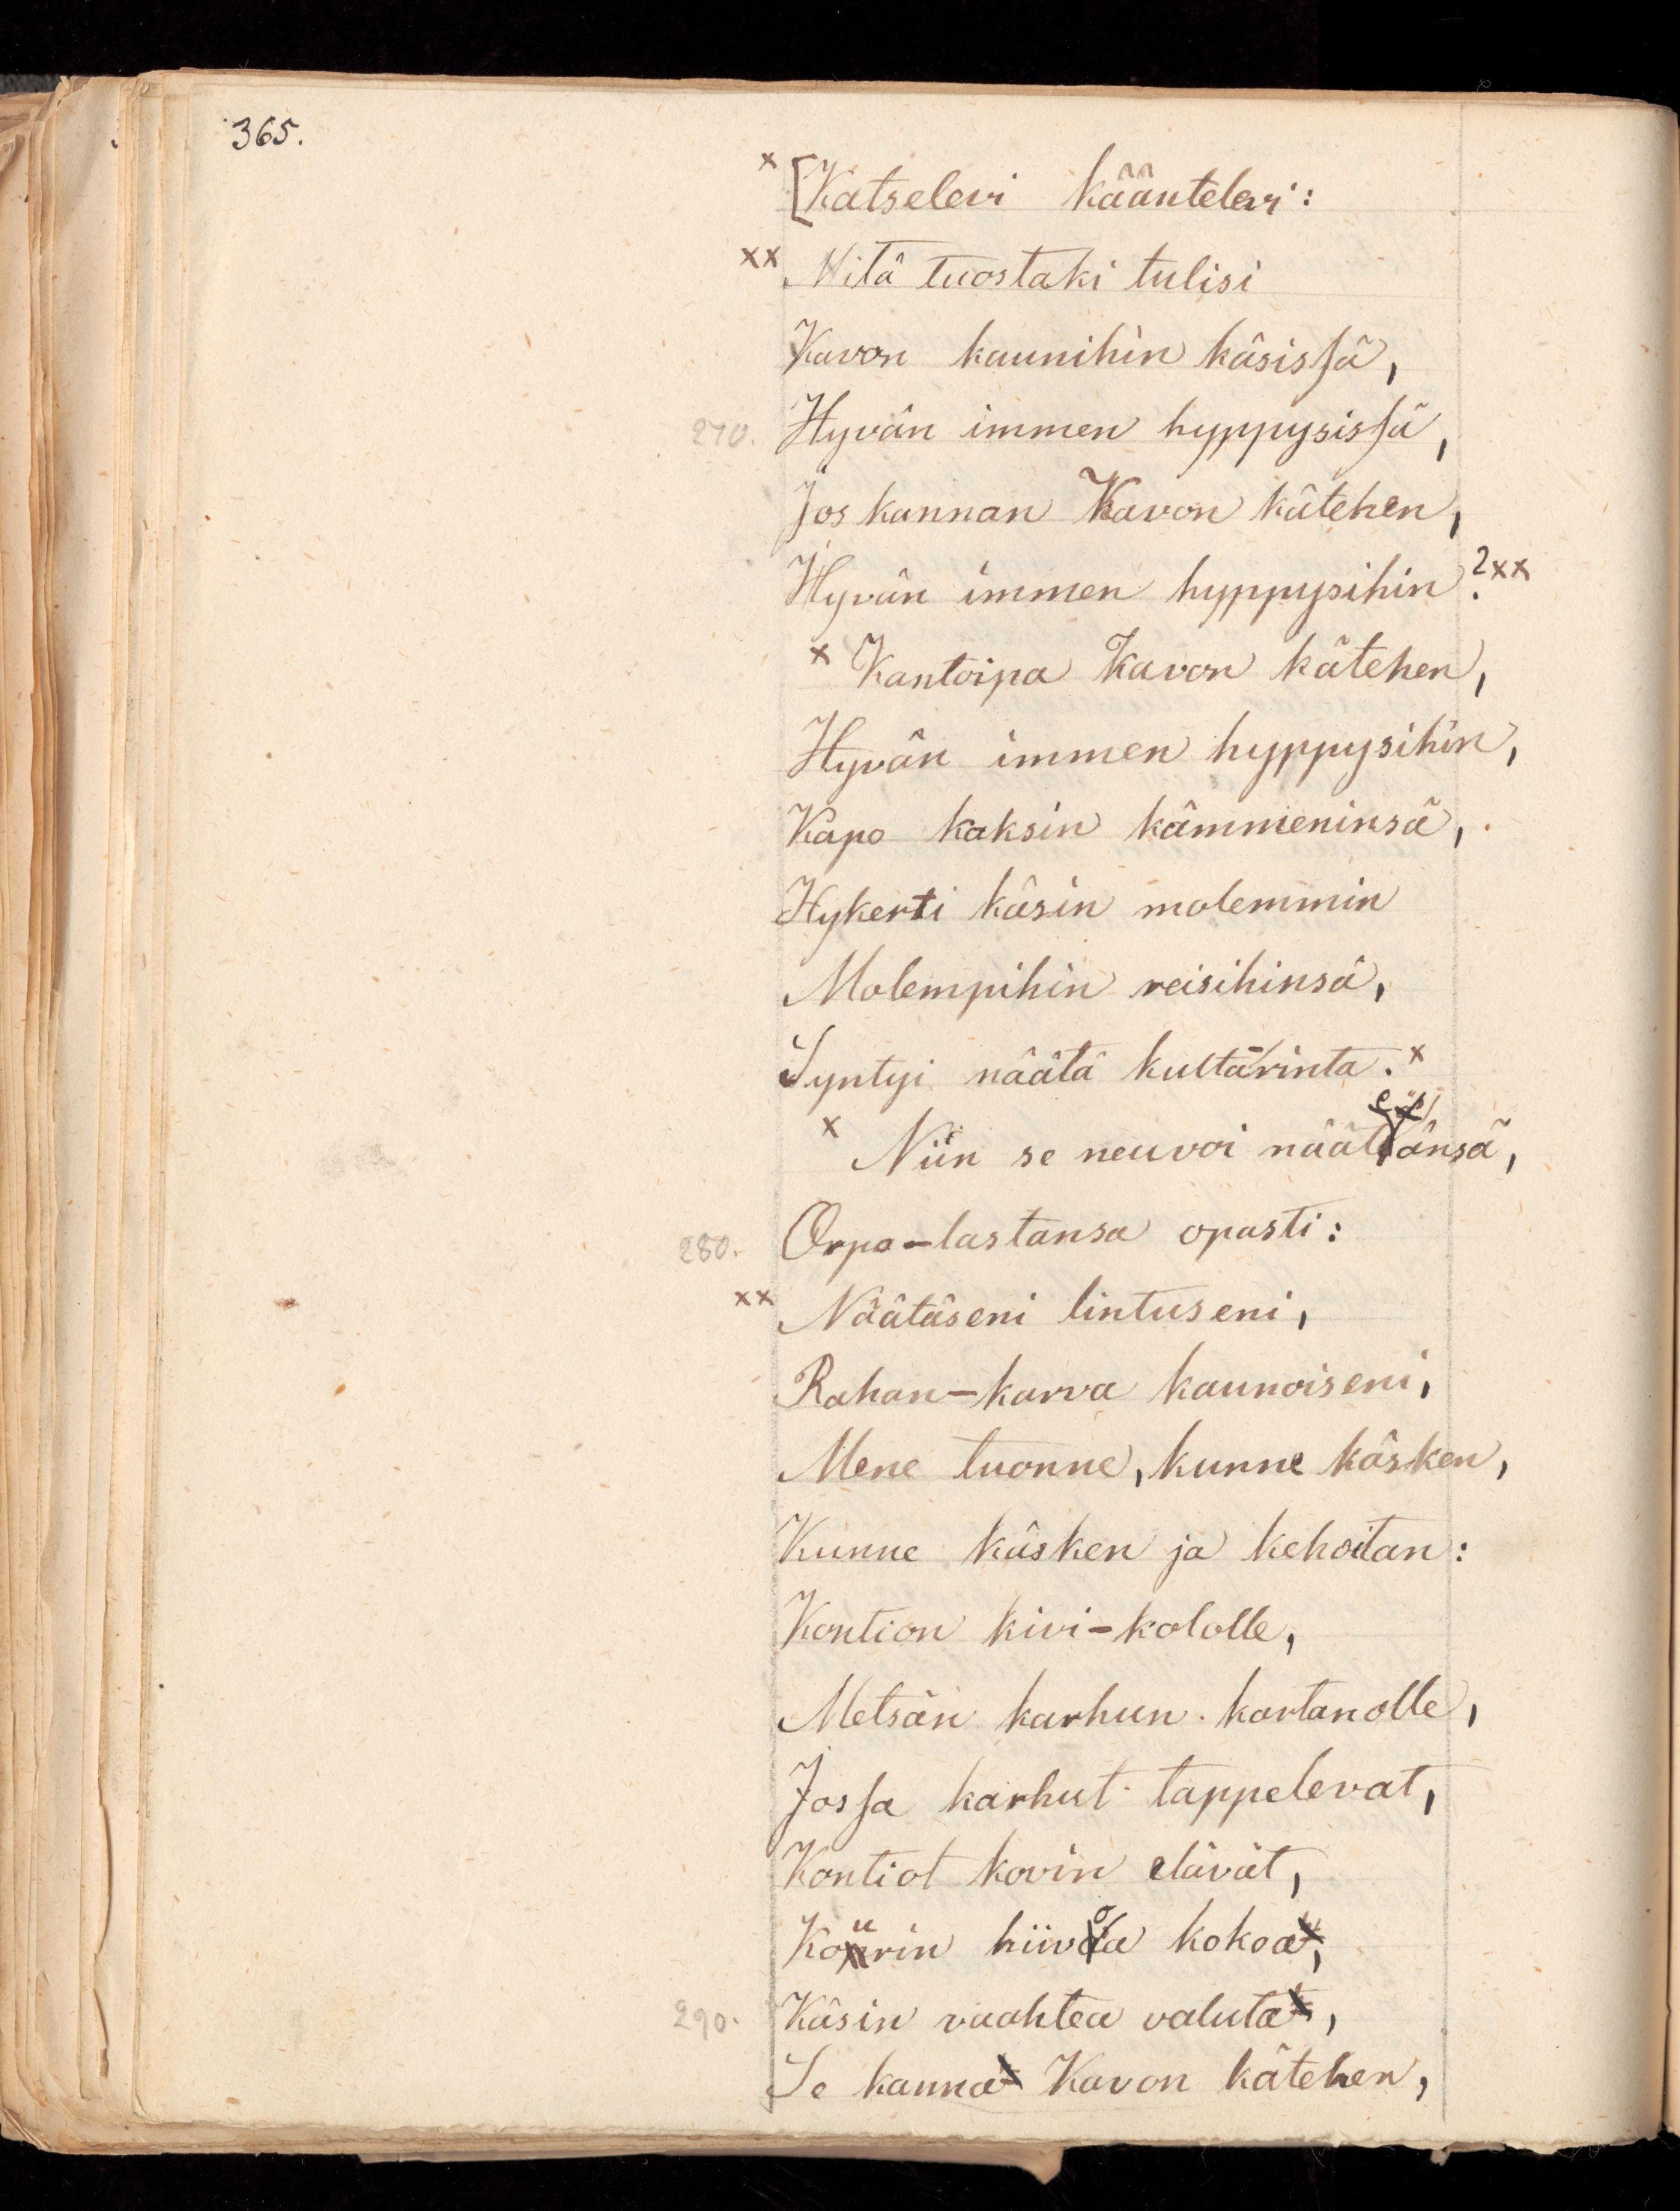 365.
x [Katselevi kääntelevi:
xx Mitä tuostaki tulisi
Kavon kaunihin käsissä,
270. Hyvän immen hyppysissä,
Jos kannan Kavon kätehen,
Hyvän immen hyppysihin? xx
x Kantoipa Kavon kätehen,
Hyvän immen hyppysihin,
Kapo kaksin kämmeninsä,
Hykerti käsin molemmin
Molempihin reisihinsä,
Syntyi näätä kulta-rinta. x
x Niin se neuvoi nääteänsä,
280. Orpo-lastansa opasti:
xx Näätäseni lintuseni,
Rahan-karva kaunoiseni,
Mene tuonne, kunne käsken,
Kunne käsken ja kehoitan:
Kontion kivi-kololle,
Metsän karhun kartanolle,
Jossa karhut tappelevat,
Kontiot kovin elävät,
Kourin hiivoa kokoa,
290. Käsin vaahtea valuta,
Se kanna Kavon kätehen,